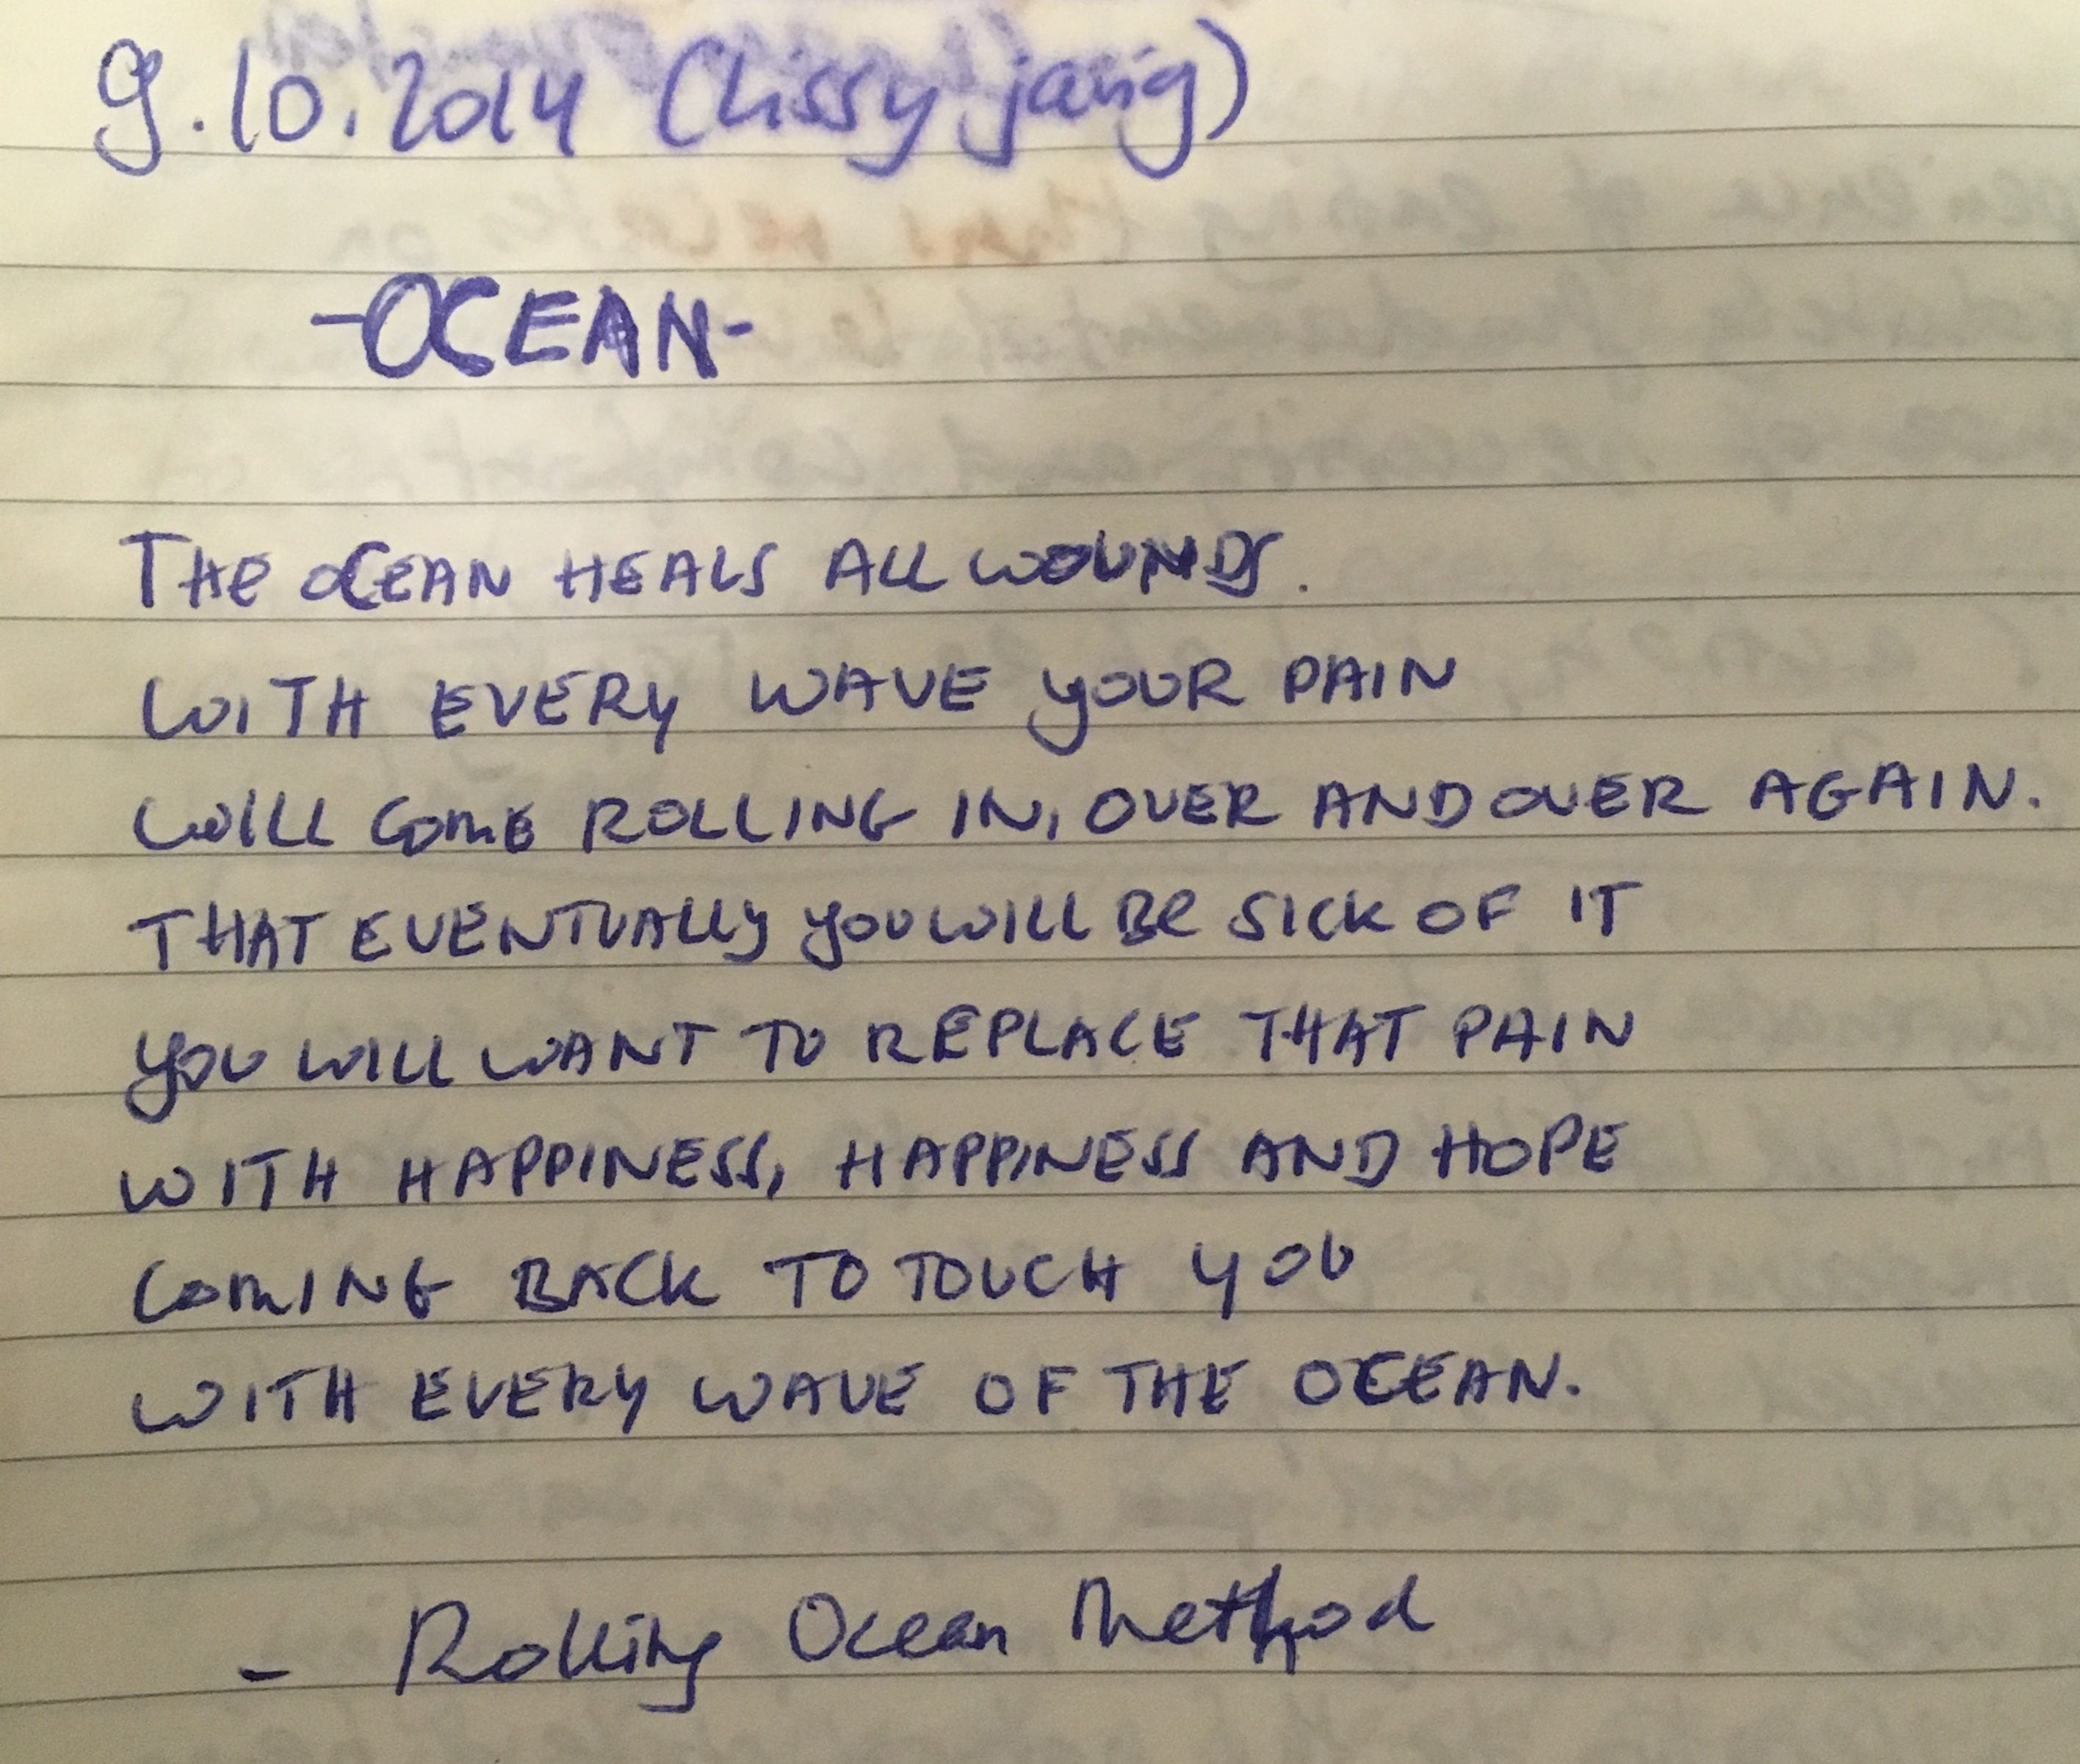 9.10.2014 (Lissy jarig)
-OCEAN-
THE OCEAN HEALS ALL WOUNDS.
WITH EVERY WAVE YOUR PAIN
WILL COME ROLLING IN, OVER AND OVER AGAIN.
THAT EVENTUALLY YOU WILL BE SICK OF IT
YOU WILL WANT TO REPLACE THAT PAIN
WITH HAPPINESS, HAPPINESS AND HOPE
COMING BACK TO TOUCH YOU
WITH EVERY WAVE OF THE OCEAN.
- Rolling Ocean Method